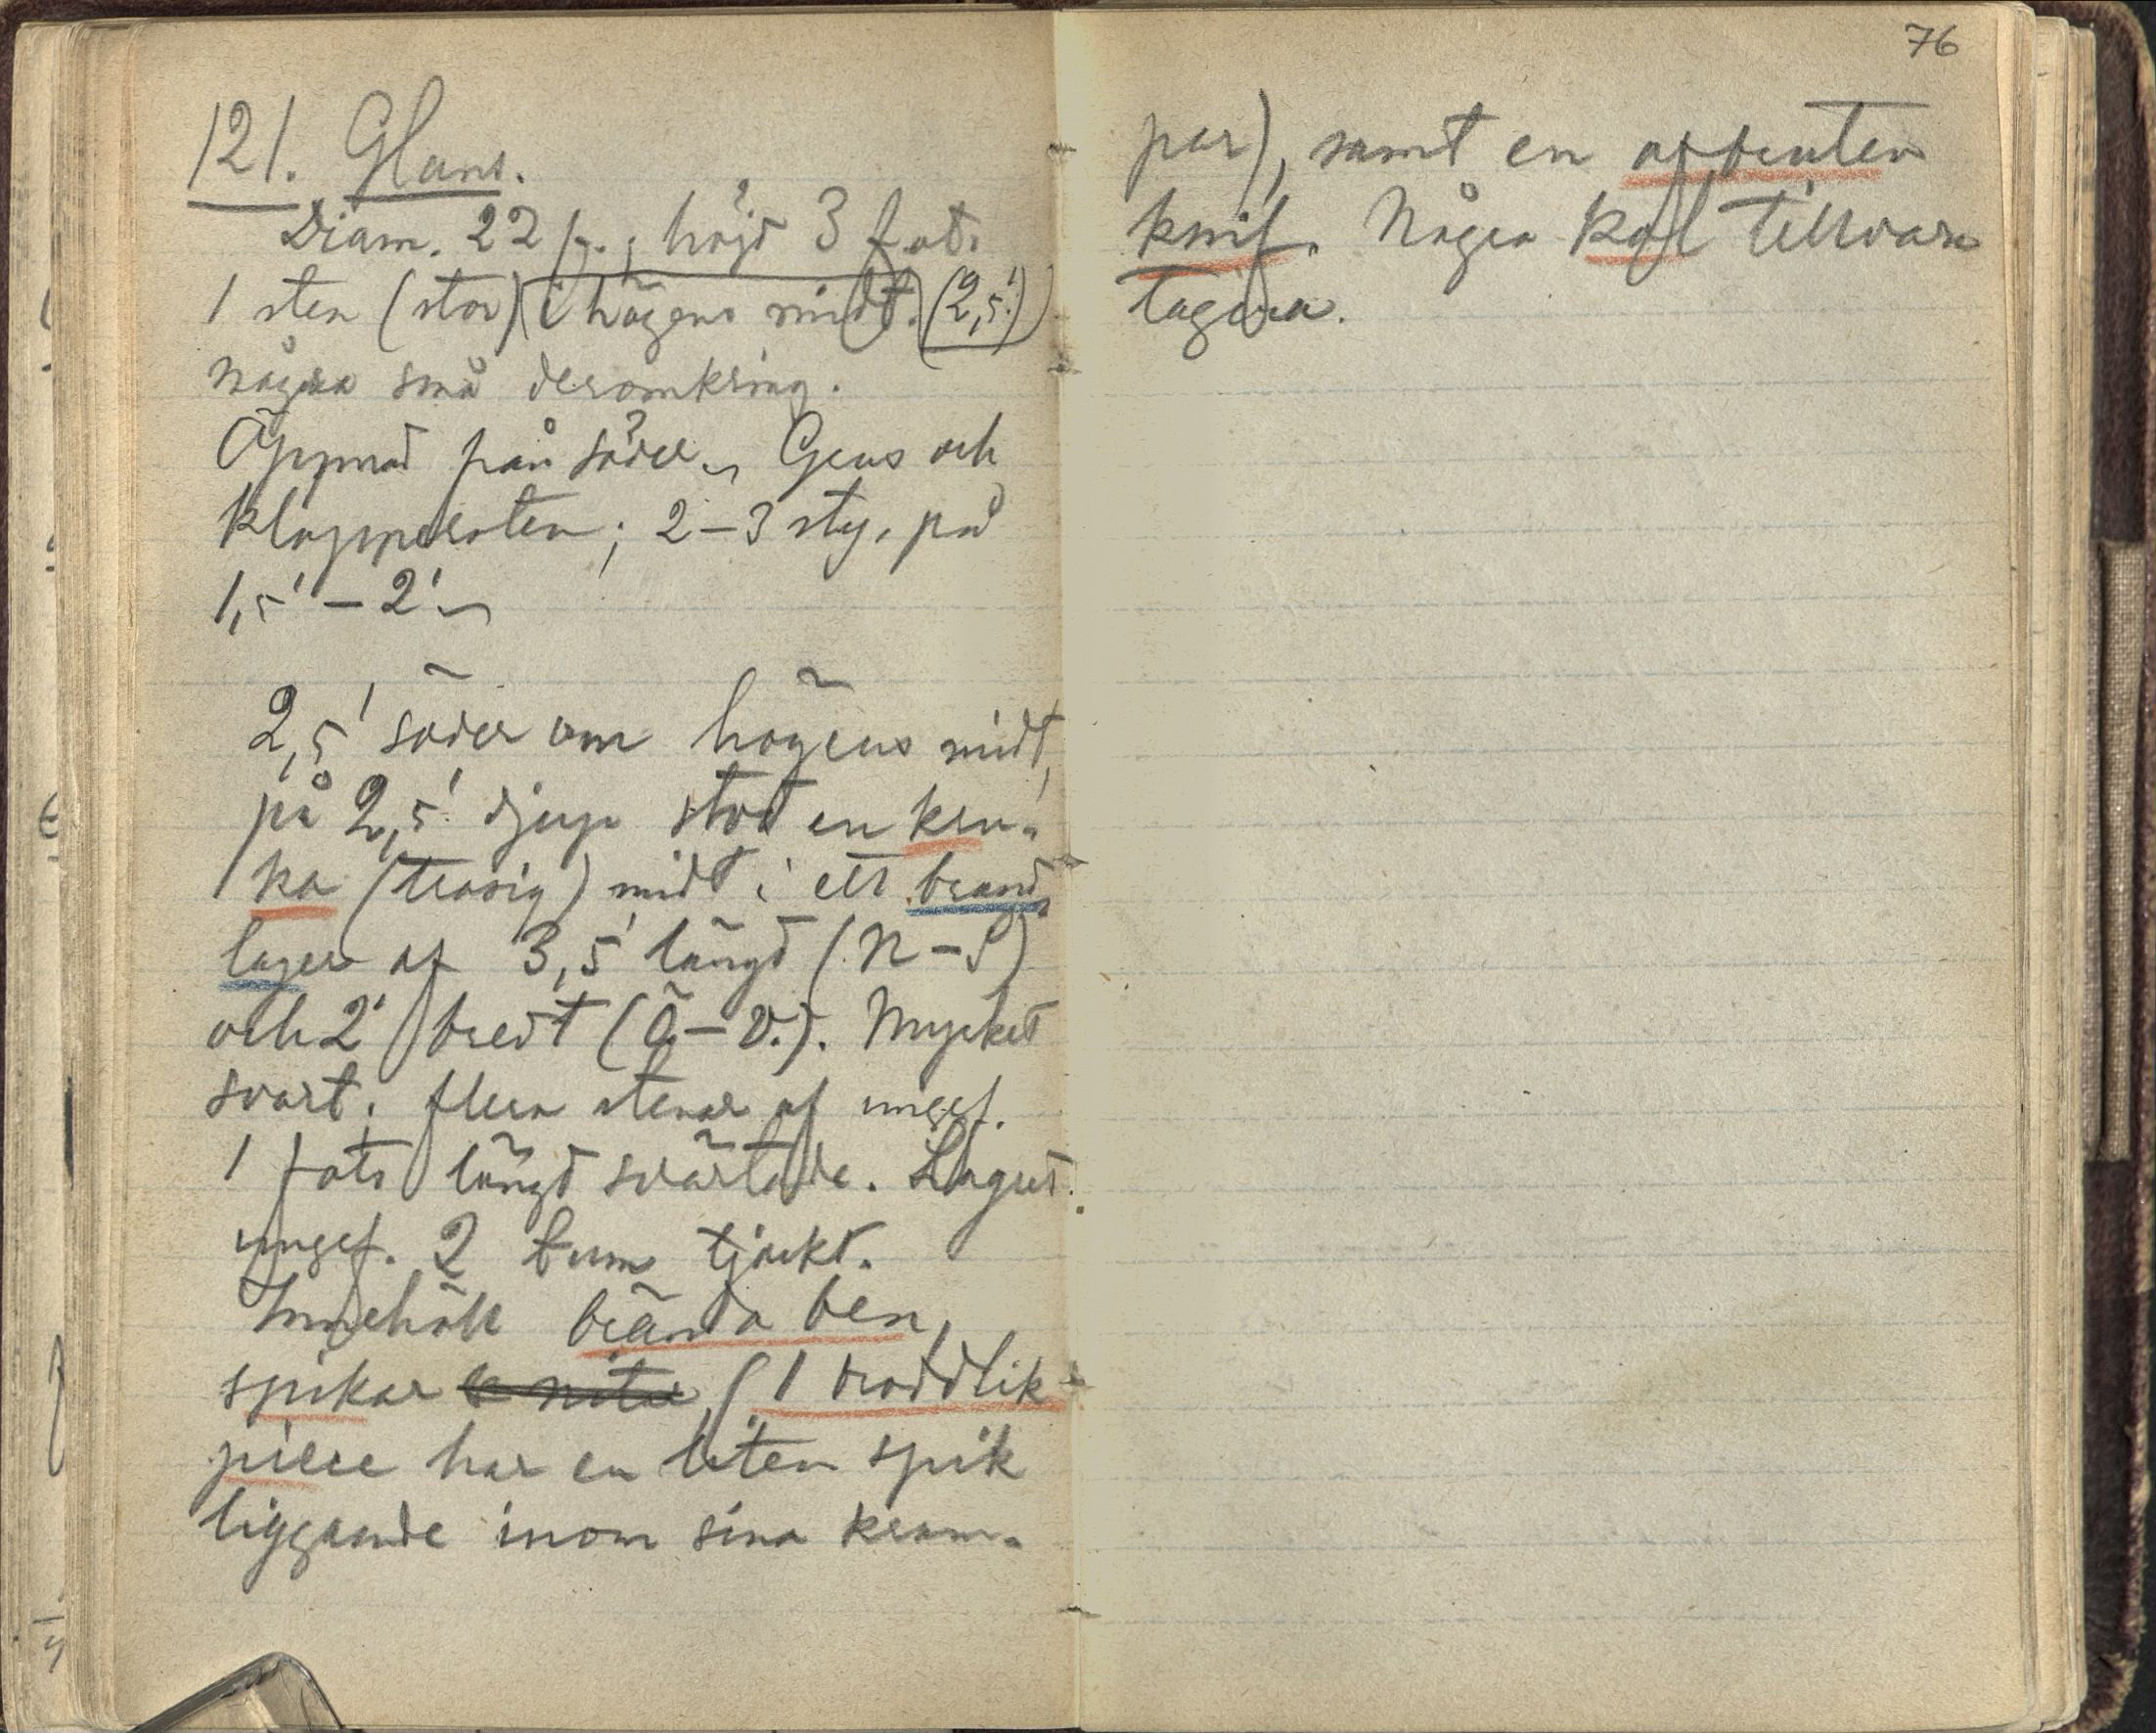 121. Glans.
Diam. 22 f.; höjd 3 fot.
1 sten (stor) i högens midt. (2,5')
några små deromkring.
Öppnad från söder. Grus och
klappersten; 2–3 sty. på
1,5' – 2'
2,5' söder om högens midt,
på 2,5' djup stod en kru-
ka (trasig) midt i ett brand-
lager af 3,5' längd (N–S)
och 2' bredt (Ö–V.). Mycket
svart; flera stenar af ungef.
1 fots längd svärtade. Lagret
ungef. 2 tum tjockt.
Innehöll brända ben,
spikar & nitar, (1 broddlik
pierce har en liten spik
liggande inom sina kram-
76
par), samt en afbruten
knif. Några kol tillvara
tagna.